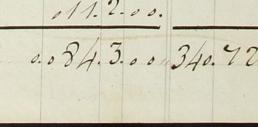 011.2.00.
0.084.3.00 340.72